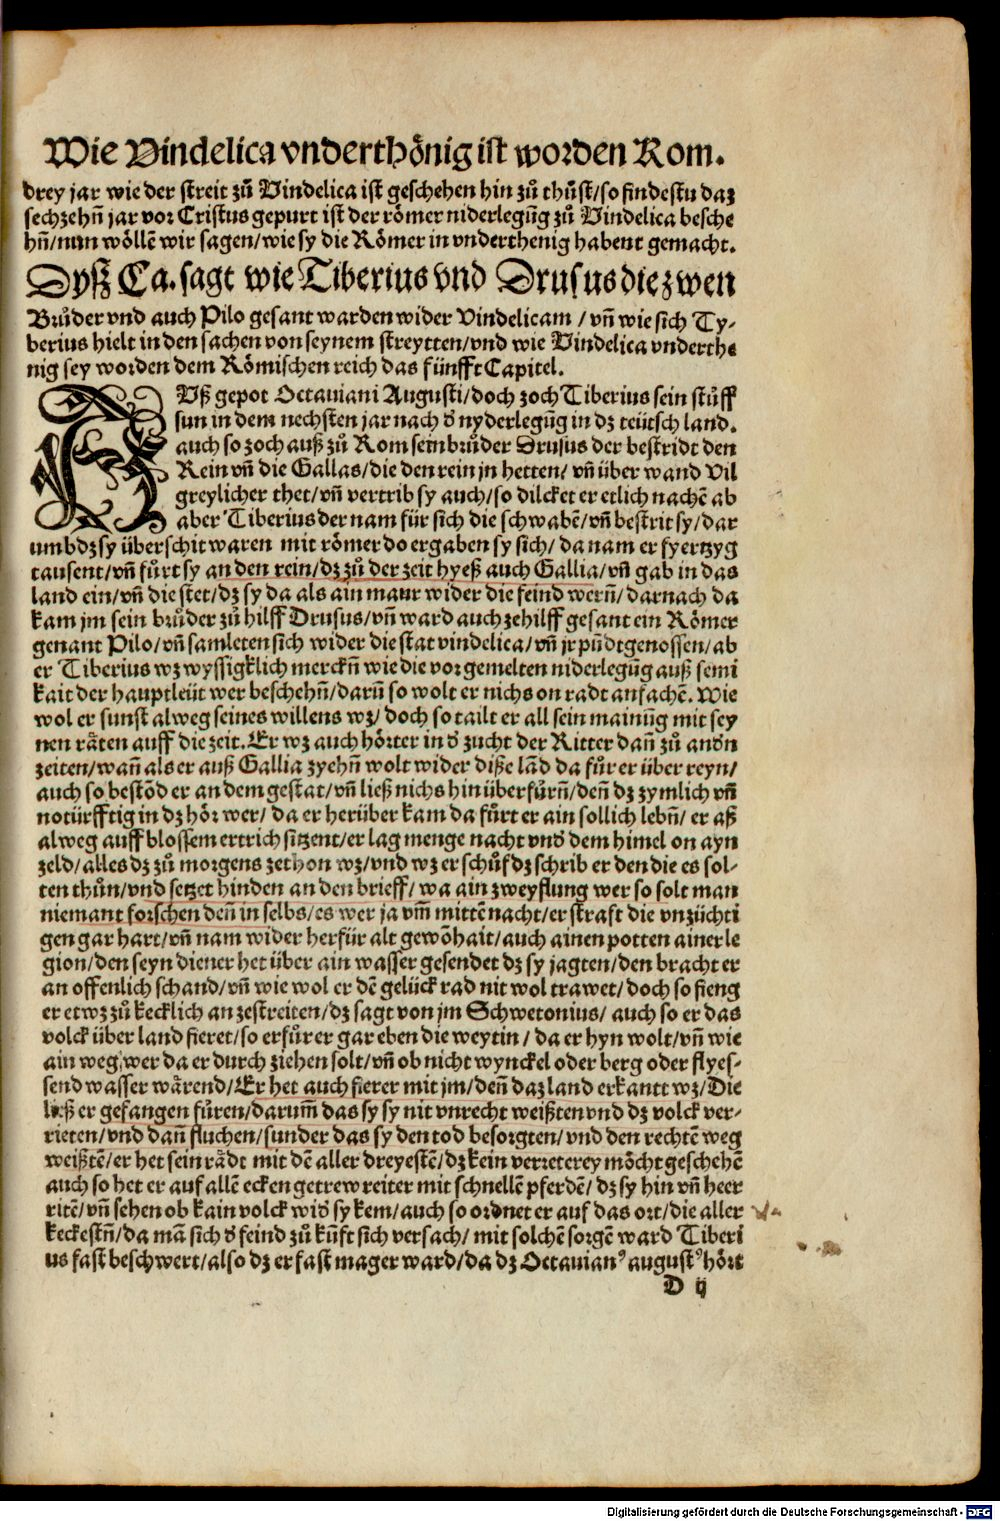 Wie Vindelica vnderthönig ist worden Rom.
drey jar wie der streit zů Vindelica ist geschehen hin zů thůst/so findestu daz
sechzehn̄ jar vor Cristus gepurt ist der römer niderlegūg zů Vindelica besche
hn̄/nun wöllē wir sagen/wie sy die Römer in vnderthenig habent gemacht.
Dyſz Ca. sagt wie Tiberius vnd Drusus die zwen
Brůder vnd auch Pilo gesant warden wider Vindelicam / vn̄ wie sich Ty-
berius hielt in den sachen von seynem streytten/vnd wie Vindelica vnderthe
nig sey worden dem Römischen reich das fünfft Capitel.
Vß gepot Octauiani Augusti/doch zoch Tiberius sein stůff
sun in dem nechsten jar nach d̄ nyderlegūg in dz teütsch land.
auch so zoch auß zů Rom sein brůder Drusus der bestridt den
Rein vn̄ die Gallas/die den rein jn hetten/ vn̄ über wand Vil
greylicher thet/vn̄ vertrib sy auch/so dilcket er etlich nachē ab
aber Tiberius der nam für sich die schwabē/vn̄ bestrit sy/dar
umb dz sy überschit waren mit römer do ergaben sy sich/ da nam er fyertzyg
tausent/vn̄ fůrt sy an den rein/dz zů der zeit hyeß auch Gallia/vn̄ gab in das
land ein/vn̄ die stet/dz sy da als ain maur wider die feind wern̄/darnach da
kam jm sein brůder zů hilff Drusus/vn̄ ward auch zehilff gesant ein Römer
genant Pilo/vn̄ samleten sich wider die stat vindelica/vn̄ jr pūdtgenossen/ab
er Tiberius wz wyssigklich merckn̄ wie die vor gemelten niderlegūg auß semi
kait der hauptleüt wer beschehn̄/darū so wolt er nichs on radt anfachē. Wie
wol er sunst alweg seines willens wz/ doch so tailt er all sein mainūg mit sey
nen räten auff die zeit. Er wz auch hörter in d̄ zucht der Ritter dan̄ zů and̄n
zeiten/wan̄ als er auß Gallia zyehn̄ wolt wider diße lād da fůr er über reyn/
auch so bestōd er an dem gestat/vn̄ ließ nichs hin überfürn̄/den̄ dz zymlich vn̄
notürfftig in dz hör wer/ da er herüber kam da fůrt er ain sollich lebn̄/ er aß
alweg auff blossem ertrich sitzent/er lag menge nacht vnd̄ dem himel on ayn
zeld/alles dz zů morgens zethon wz/vnd wz er schůf dz schrib er den die es sol-
ten thůn/vnd setzet hinden an den brieff/ wa ain zweyflung wer so solt man
niemant forschen den̄ in selbs/es wer ja vm̄ mittē nacht/er straft die vnzüchti
gen gar hart/vn̄ nam wider herfür alt gewōhait/auch ainen potten ainer le
gion/den seyn diener het über ain wasser gesendet dz sy jagten/den bracht er
an offenlich schand/vn̄ wie wol er dē gelück rad nit wol trawet/ doch so fieng
er etwz zů kecklich an zestreiten/dz sagt von jm Schwetonius/ auch so er das
volck über land fieret/so erfůr er gar eben die weytin / da er hyn wolt/vn̄ wie
ain weg/wer da er durch ziehen solt/vn̄ ob nicht wynckel oder berg oder flyes-
send wasser wärend/Er het auch fierer mit jm/den̄ daz land erkantt wz/Die
ließ er gefangen füren/darum̄ das sy sy nit vnrecht weißten vnd dz volck ver-
rieten/vnd dan̄ fluchen/sunder das sy den tod besorgten/vnd den rechtē weg
weißtē/er het sein rädt mit dē aller dreyestē/dz kein verreterey möcht geschehē
auch so het er auf allē ecken getrew reiter mit schnellē pferdē/ dz sy hin vn̄ heer
ritē/vn̄ sehen ob kain volck wid̄ sy kem/auch so ordnet er auf das ort/die aller
keckestn̄/da mā sich d̄ feind zů kūft sich versach/ mit solchē sorgē ward Tiberi
us fast beschwert/also dz er fast mager ward/da dz Octauianꝰ augustꝰ hört
D ij
Digitalisierung gefördert durch die Deutsche Forschungsgemeinschaft - DFG